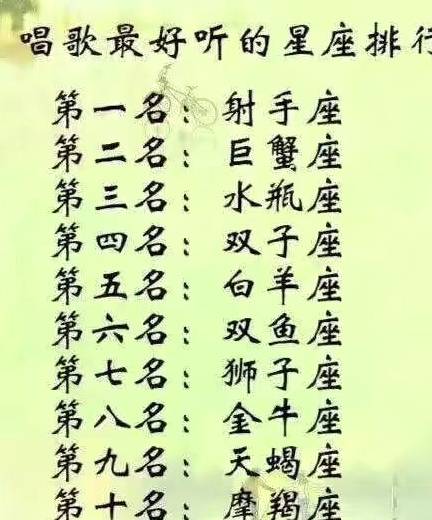 唱歌最好听的星座排行
第一名：射手座
第二名：巨蟹座
第三名：水瓶座
第四名：双子座
第五名：白羊座
第六名：双鱼座
第七名：狮子座
第八名：金牛座
第九名：天蝎座
第十名：摩羯座